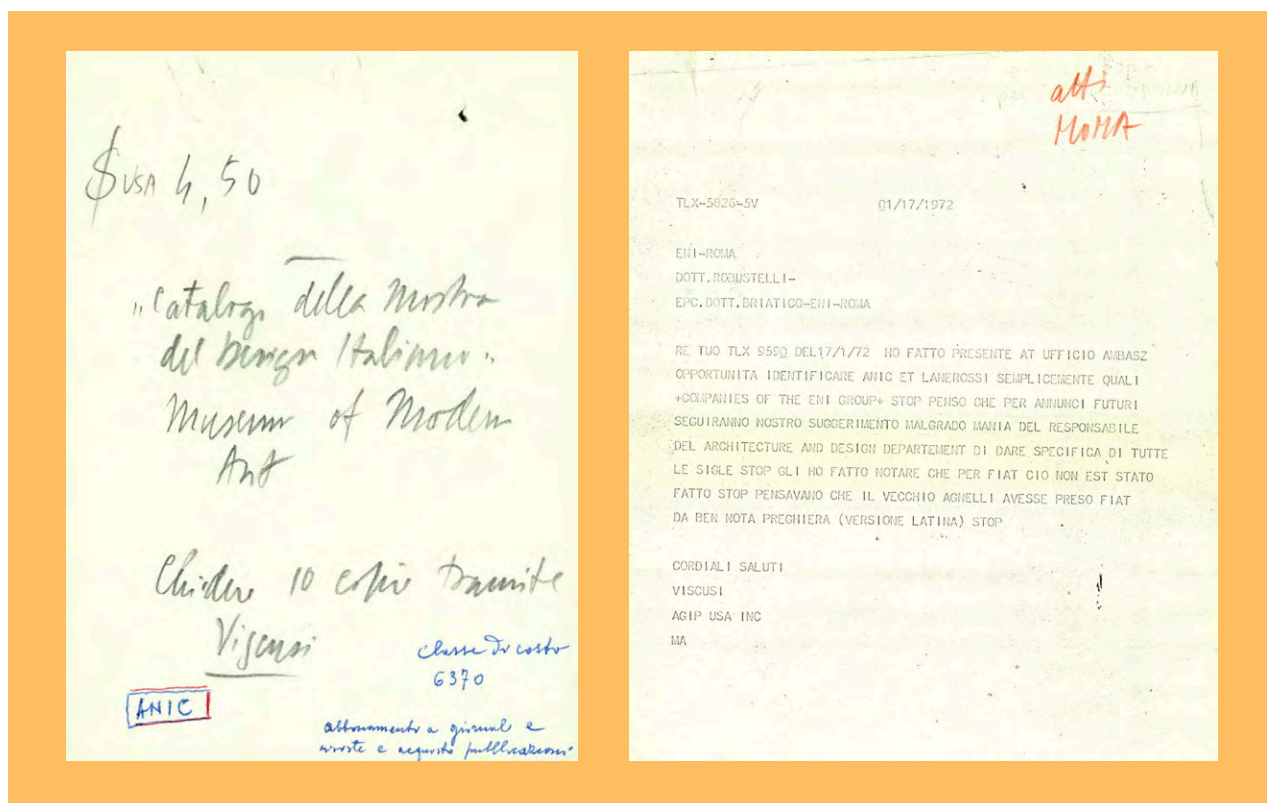 $ USA 4,50
"Catalogo della Mostra
del Design Italiano"
Museum of Modern
Art
Chiedere 10 copie tramite
Viscusi
classe di costo
6370
ANIC
abbonamento a giornali e
riviste e acquisto pubblicazioni
atti
MOMA
TLX-5826-5V 01/17/1972
ENI-ROMA
DOTT.ROBUSTELLI-
EPC.DOTT.BRIATICO-ENI-ROMA
RE TUO TLX 9590 DEL17/1/72 HO FATTO PRESENTE AT UFFICIO AMBASZ
OPPORTUNITA IDENTIFICARE ANIC ET LANEROSSI SEMPLICEMENTE QUALI
+COMPANIES OF THE ENI GROUP+ STOP PENSO CHE PER ANNUNCI FUTURI
SEGUIRANNO NOSTRO SUGGERIMENTO MALGRADO MANIA DEL RESPONSABILE
DEL ARCHITECTURE AND DESIGN DEPARTEMENT DI DARE SPECIFICA DI TUTTE
LE SIGLE STOP GLI HO FATTO NOTARE CHE PER FIAT CIO NON EST STATO
FATTO STOP PENSAVANO CHE IL VECCHIO AGNELLI AVESSE PRESO FIAT
DA BEN NOTA PREGHIERA (VERSIONE LATINA) STOP
CORDIALI SALUTI
VISCUSI
AGIP USA INC
MA